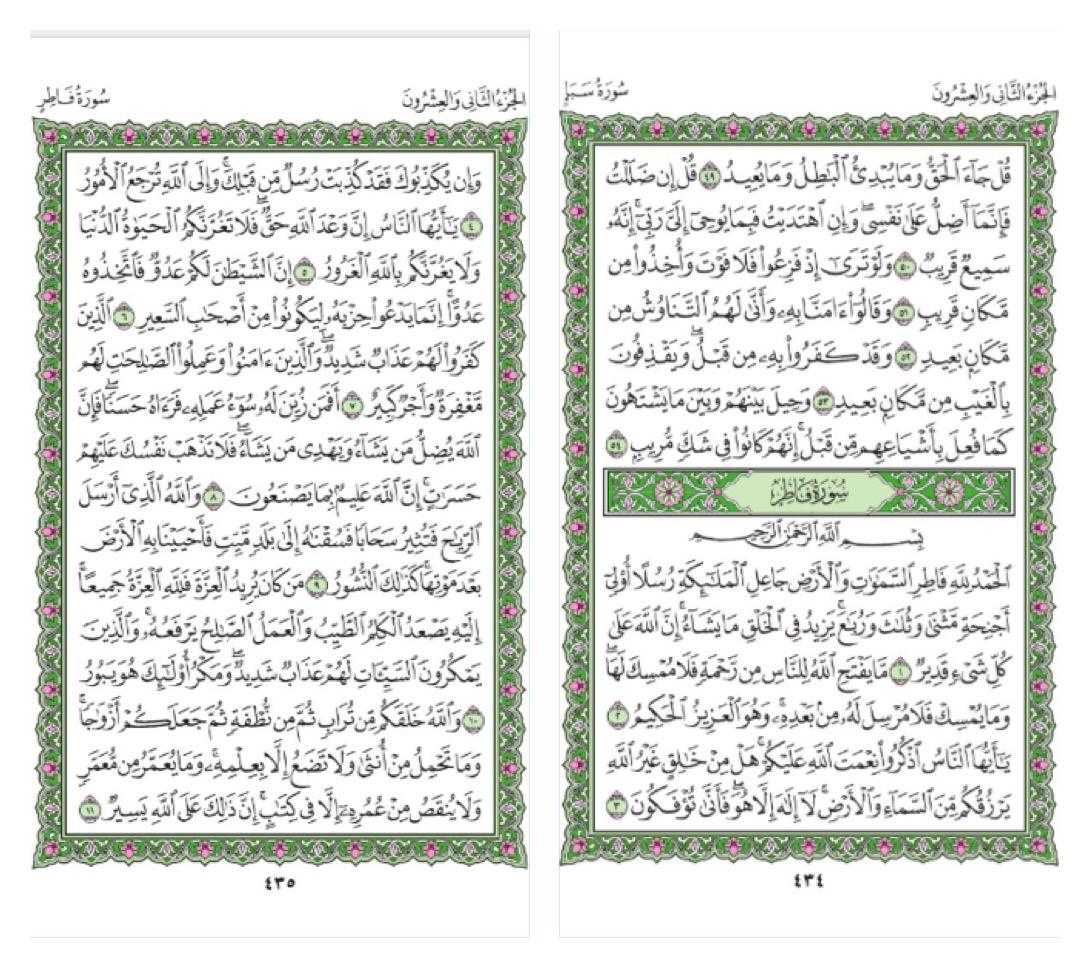 الجزء الثاني والعشرون
سورة سبإ
قُلْ جَآءَ ٱلْحَقُّ وَمَا يُبْدِئُ ٱلْبَٰطِلُ وَمَا يُعِيدُ ٤٩ قُلْ إِن ضَلَلْتُ
فَإِنَّمَآ أَضِلُّ عَلَىٰ نَفْسِى ۖ وَإِنِ ٱهْتَدَيْتُ فَبِمَا يُوحِىٓ إِلَىَّ رَبِّىٓ ۚ إِنَّهُۥ
سَمِيعٌ قَرِيبٌ ٥٠ وَلَوْ تَرَىٰٓ إِذْ فَزِعُوا۟ فَلَا فَوْتَ وَأُخِذُوا۟ مِن
مَّكَانٍ قَرِيبٍ ٥١ وَقَالُوٓا۟ ءَامَنَّا بِهِۦ وَأَنَّىٰ لَهُمُ ٱلتَّنَاوُشُ مِن
مَّكَانٍۭ بَعِيدٍ ٥٢ وَقَدْ كَفَرُوا۟ بِهِۦ مِن قَبْلُ ۖ وَيَقْذِفُونَ
بِٱلْغَيْبِ مِن مَّكَانٍۭ بَعِيدٍ ٥٣ وَحِيلَ بَيْنَهُمْ وَبَيْنَ مَا يَشْتَهُونَ
كَمَا فُعِلَ بِأَشْيَاعِهِم مِّن قَبْلُ ۚ إِنَّهُمْ كَانُوا۟ فِى شَكٍّ مُّرِيبٍۭ ٥٤
سورة فاطر
بِسْمِ ٱللَّهِ ٱلرَّحْمَٰنِ ٱلرَّحِيمِ
ٱلْحَمْدُ لِلَّهِ فَاطِرِ ٱلسَّمَٰوَٰتِ وَٱلْأَرْضِ جَاعِلِ ٱلْمَلَٰٓئِكَةِ رُسُلًا أُو۟لِىٓ
أَجْنِحَةٍ مَّثْنَىٰ وَثُلَٰثَ وَرُبَٰعَ ۚ يَزِيدُ فِى ٱلْخَلْقِ مَا يَشَآءُ ۚ إِنَّ ٱللَّهَ عَلَىٰ
كُلِّ شَىْءٍ قَدِيرٌ ١ مَّا يَفْتَحِ ٱللَّهُ لِلنَّاسِ مِن رَّحْمَةٍ فَلَا مُمْسِكَ لَهَا ۖ
وَمَا يُمْسِكْ فَلَا مُرْسِلَ لَهُۥ مِنۢ بَعْدِهِۦ ۚ وَهُوَ ٱلْعَزِيزُ ٱلْحَكِيمُ ٢
يَٰٓأَيُّهَا ٱلنَّاسُ ٱذْكُرُوا۟ نِعْمَتَ ٱللَّهِ عَلَيْكُمْ ۚ هَلْ مِنْ خَٰلِقٍ غَيْرُ ٱللَّهِ
يَرْزُقُكُم مِّنَ ٱلسَّمَآءِ وَٱلْأَرْضِ ۚ لَآ إِلَٰهَ إِلَّا هُوَ ۖ فَأَنَّىٰ تُؤْفَكُونَ ٣
٤٣٤
الجزء الثاني والعشرون
سورة فاطر
وَإِن يُكَذِّبُوكَ فَقَدْ كُذِّبَتْ رُسُلٌ مِّن قَبْلِكَ ۚ وَإِلَى ٱللَّهِ تُرْجَعُ ٱلْأُمُورُ
٤ يَٰٓأَيُّهَا ٱلنَّاسُ إِنَّ وَعْدَ ٱللَّهِ حَقٌّ ۖ فَلَا تَغُرَّنَّكُمُ ٱلْحَيَوٰةُ ٱلدُّنْيَا
وَلَا يَغُرَّنَّكُم بِٱللَّهِ ٱلْغَرُورُ ٥ إِنَّ ٱلشَّيْطَٰنَ لَكُمْ عَدُوٌّ فَٱتَّخِذُوهُ
عَدُوًّا ۚ إِنَّمَا يَدْعُوا۟ حِزْبَهُۥ لِيَكُونُوا۟ مِنْ أَصْحَٰبِ ٱلسَّعِيرِ ٦ ٱلَّذِينَ
كَفَرُوا۟ لَهُمْ عَذَابٌ شَدِيدٌ ۖ وَٱلَّذِينَ ءَامَنُوا۟ وَعَمِلُوا۟ ٱلصَّٰلِحَٰتِ لَهُم
مَّغْفِرَةٌ وَأَجْرٌ كَبِيرٌ ٧ أَفَمَن زُيِّنَ لَهُۥ سُوٓءُ عَمَلِهِۦ فَرَءَاهُ حَسَنًا ۖ فَإِنَّ
ٱللَّهَ يُضِلُّ مَن يَشَآءُ وَيَهْدِى مَن يَشَآءُ ۖ فَلَا تَذْهَبْ نَفْسُكَ عَلَيْهِمْ
حَسَرَٰتٍ ۚ إِنَّ ٱللَّهَ عَلِيمٌۢ بِمَا يَصْنَعُونَ ٨ وَٱللَّهُ ٱلَّذِىٓ أَرْسَلَ
ٱلرِّيَٰحَ فَتُثِيرُ سَحَابًا فَسُقْنَٰهُ إِلَىٰ بَلَدٍ مَّيِّتٍ فَأَحْيَيْنَا بِهِ ٱلْأَرْضَ
بَعْدَ مَوْتِهَا ۚ كَذَٰلِكَ ٱلنُّشُورُ ٩ مَن كَانَ يُرِيدُ ٱلْعِزَّةَ فَلِلَّهِ ٱلْعِزَّةُ جَمِيعًا ۚ
إِلَيْهِ يَصْعَدُ ٱلْكَلِمُ ٱلطَّيِّبُ وَٱلْعَمَلُ ٱلصَّٰلِحُ يَرْفَعُهُۥ ۚ وَٱلَّذِينَ
يَمْكُرُونَ ٱلسَّيِّـَٔاتِ لَهُمْ عَذَابٌ شَدِيدٌ ۖ وَمَكْرُ أُو۟لَٰٓئِكَ هُوَ يَبُورُ
١٠ وَٱللَّهُ خَلَقَكُم مِّن تُرَابٍ ثُمَّ مِن نُّطْفَةٍ ثُمَّ جَعَلَكُمْ أَزْوَٰجًا ۚ
وَمَا تَحْمِلُ مِنْ أُنثَىٰ وَلَا تَضَعُ إِلَّا بِعِلْمِهِۦ ۚ وَمَا يُعَمَّرُ مِن مُّعَمَّرٍ
وَلَا يُنقَصُ مِنْ عُمُرِهِۦٓ إِلَّا فِى كِتَٰبٍ ۚ إِنَّ ذَٰلِكَ عَلَى ٱللَّهِ يَسِيرٌ ١١
٤٣٥